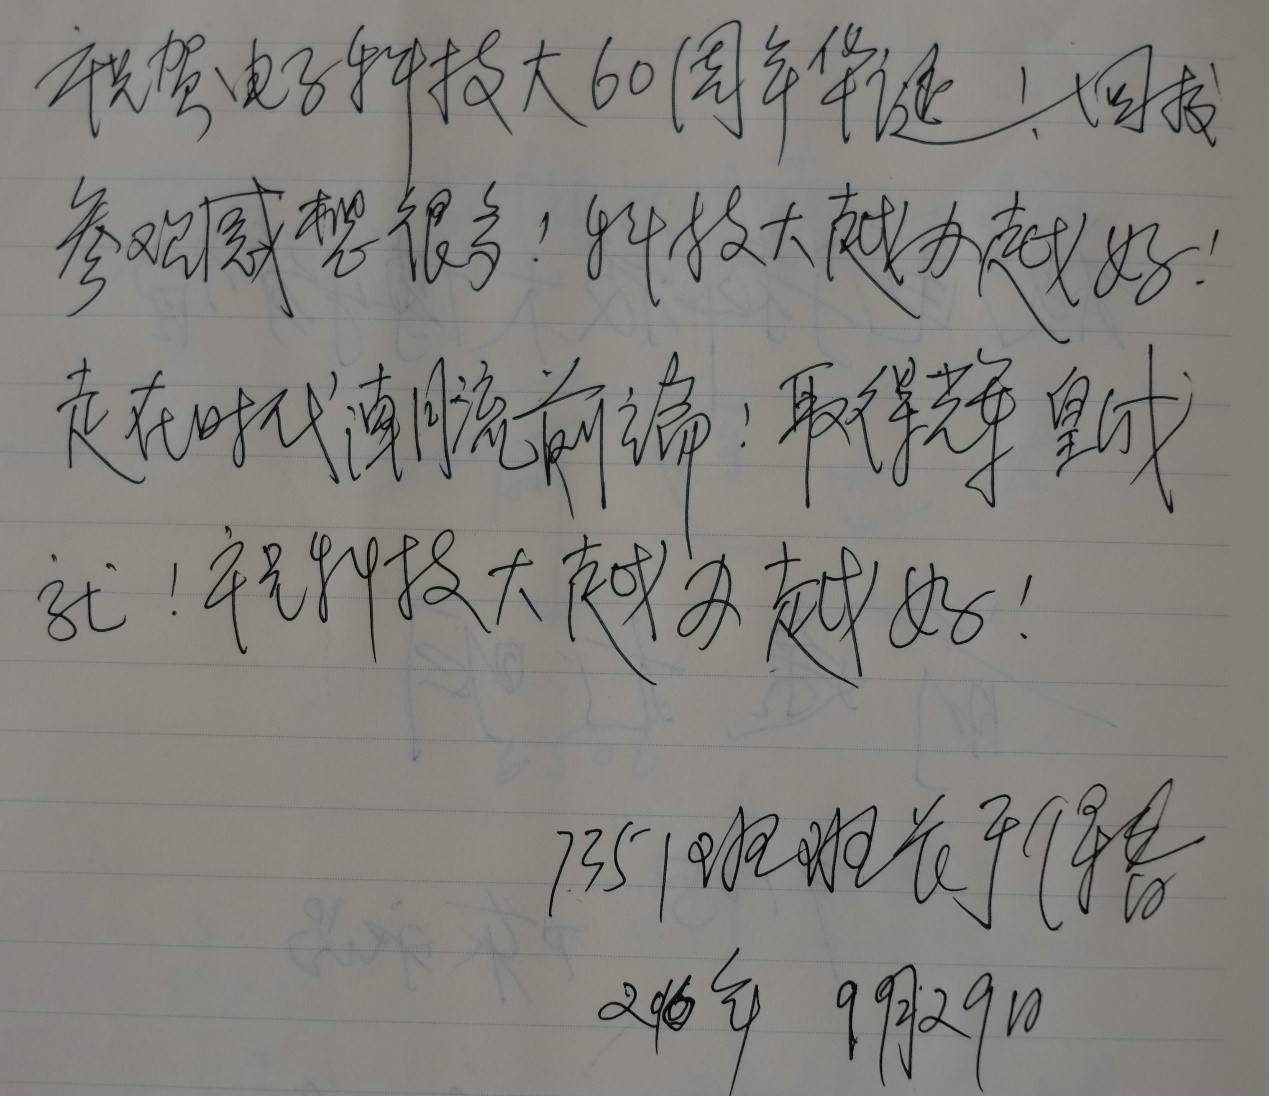 祝贺电子科技大60周年华诞!回校
参观感想很多!科技大越办越好!
走在时代潮流前端!取得光辉皇成
就!祝科技大越办越好!
7351班班长于得
2016年 9月29日